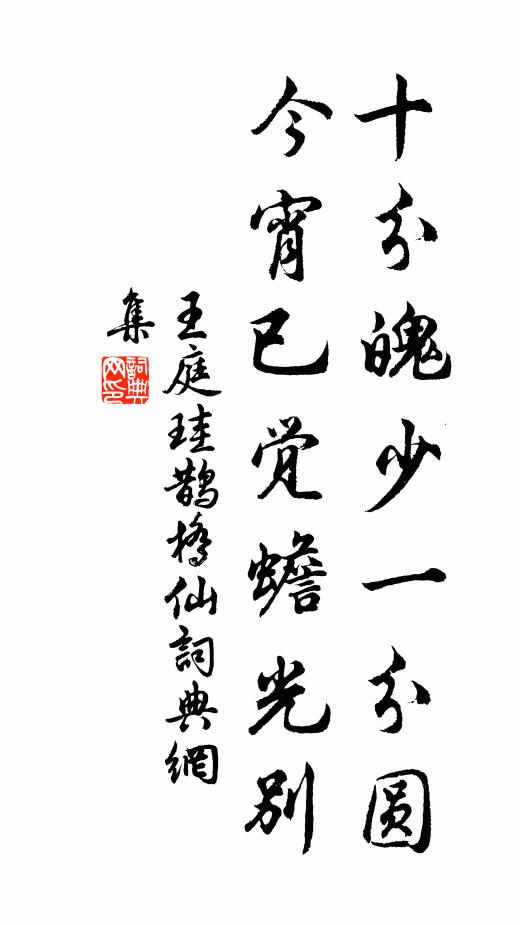 十分魄少一分圆
今宵已觉蟾光别
王庭珪鹊桥仙詞典網
集
詞典
网印